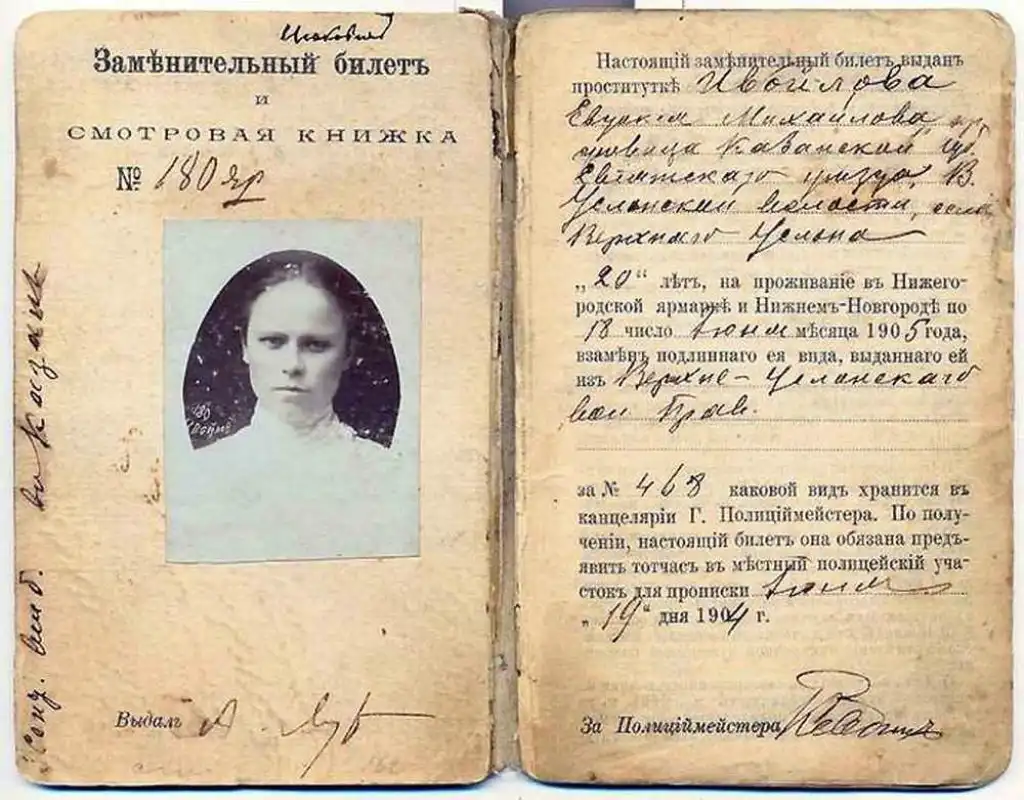 Замѣнительный билетъ
и
СМОТРОВАЯ КНИЖКА
№ 180 яр
180
Выдалъ А.
въ Казань
Настоящій замѣнительный билетъ выданъ
проституткѣ Ивойлова
Евдокія Михайлова
Казанской губ.
уѣзда, В.
Услонской волости, села
Верхняго Услона
„20“ лѣтъ, на проживаніе въ Нижего-
родской ярмаркѣ и Нижнемъ-Новгородѣ по
18 число Іюня мѣсяца 1905 года,
взамѣнъ подлиннаго ея вида, выданнаго ей
изъ Верхне-Услонскаго
вол Прав.
за № 468 каковой видъ хранится въ
канцеляріи Г. Полиціймейстера. По полу-
ченіи, настоящій билетъ она обязана предъ-
явить тотчасъ въ мѣстный полицейскій уча-
стокъ для прописки Іюня
„19“ дня 1904 г.
За Полиціймейстера